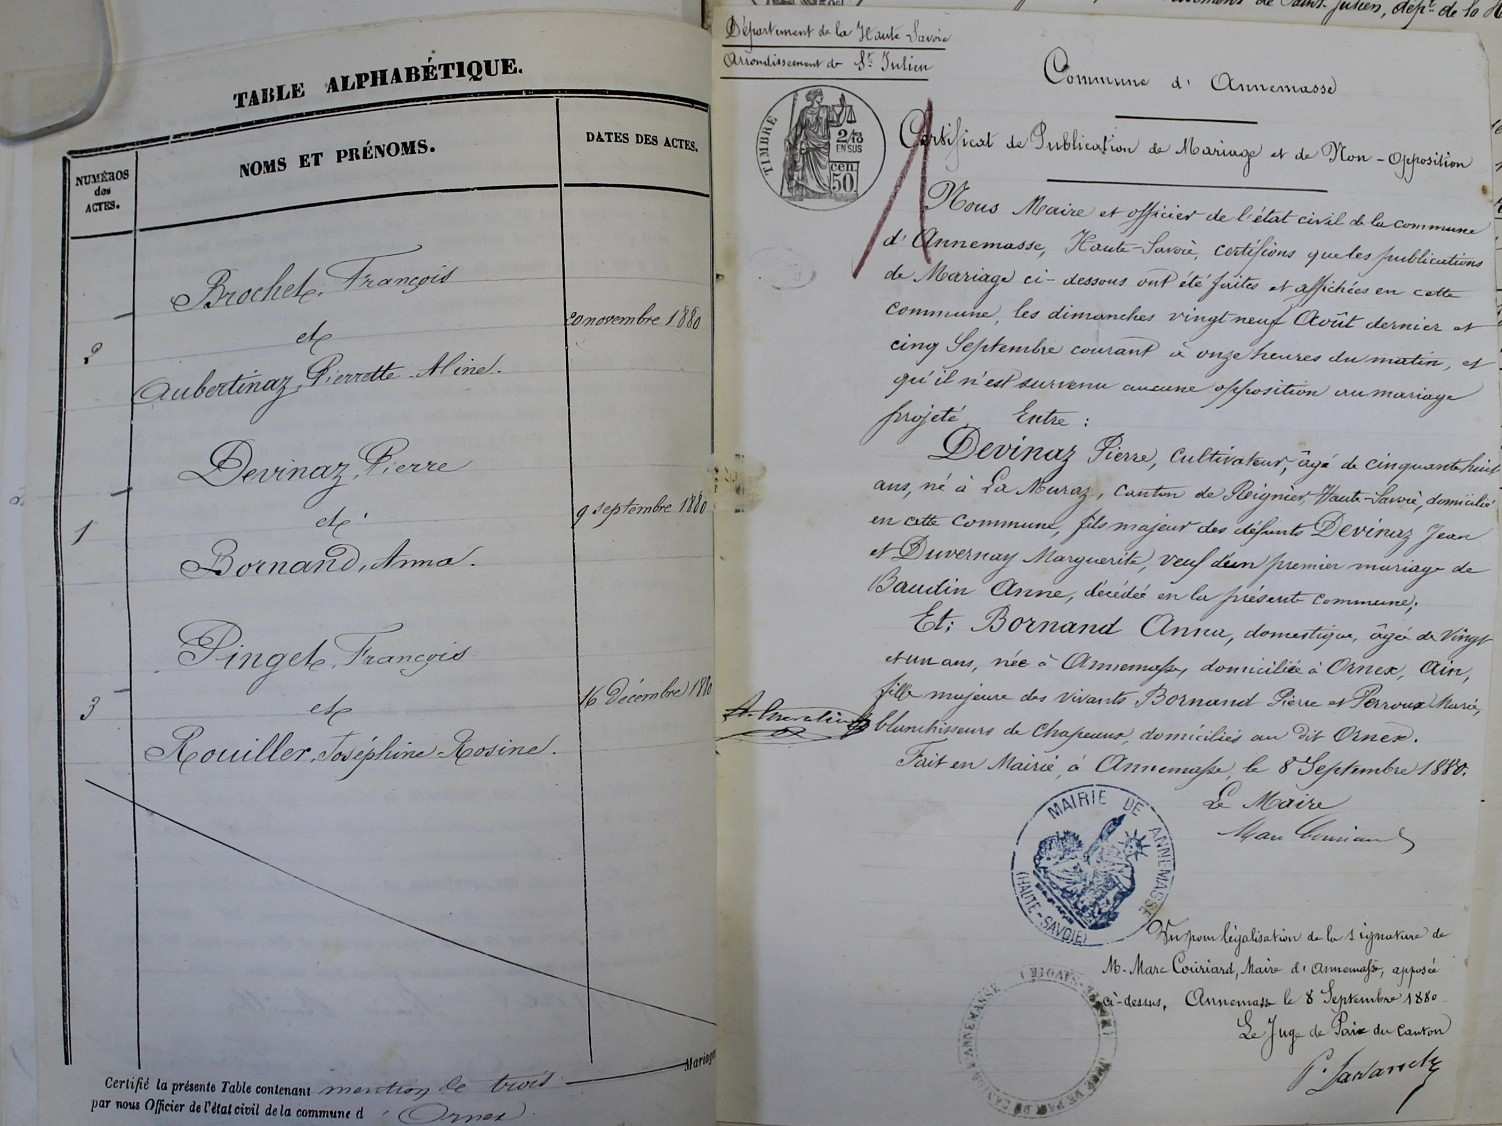 TABLE ALPHABÉTIQUE.
NUMÉROS
des
ACTES.
NOMS ET PRÉNOMS.
DATES DES ACTES.
Brochet, François
20 novembre 1880
et
2
Aubertinaz, Pierrette Aline.
Devinaz, Pierre
9 septembre 1880
et
1
Bornand, Anna.
Pinget, François
16 décembre 1880
et
3
Rouiller, Joséphine Rosine.
Mariages
Certifié la présente Table contenant mention de trois
par nous Officier de l'état civil de la commune d' Ornex.
Département de la Haute Savoie
Arrondissement de St Julien
Commune d'Annemasse
TIMBRE
2/10
EN SUS
cen
50
Certificat de Publication de Mariage et de Non-opposition
Nous Maire et officier de l'état civil de la commune
d'Annemasse, Haute-Savoie, certifions que les publications
de Mariage ci-dessous ont été faites et affichées en cette
commune, les dimanches vingt neuf Août dernier et
cinq Septembre courant à onze heures du matin, et
qu'il n'est survenu aucune opposition au mariage
projeté Entre :
Devinaz Pierre, Cultivateur, âgé de cinquante huit
ans, né à La Muraz, canton de Reignier, Haute-Savoie, domicilié
en cette commune, fils majeur des défunts Devinaz Jean
et Duvernay Marguerite, veuf d'un premier mariage de
Baudin Anne, décédée en la présente commune,
Et: Bornand Anna, domestique, âgée de Vingt
et un ans, née à Annemasse, domiciliée à Ornex, Ain,
fille majeure des vivants Bornand Pierre et Perroux Marie,
blanchisseurs de chapeaux, domiciliés au dit Ornex.
Fait en Mairie, à Annemasse, le 8 Septembre 1880.
Le Maire
MAIRIE DE ANNEMASSE
(HAUTE-SAVOIE)
Vu pour légalisation de la signature de
M. Marc Couriard, Maire d'Annemasse, apposée
ci-dessus, Annemasse le 8 Septembre 1880
Le Juge de Paix du Canton